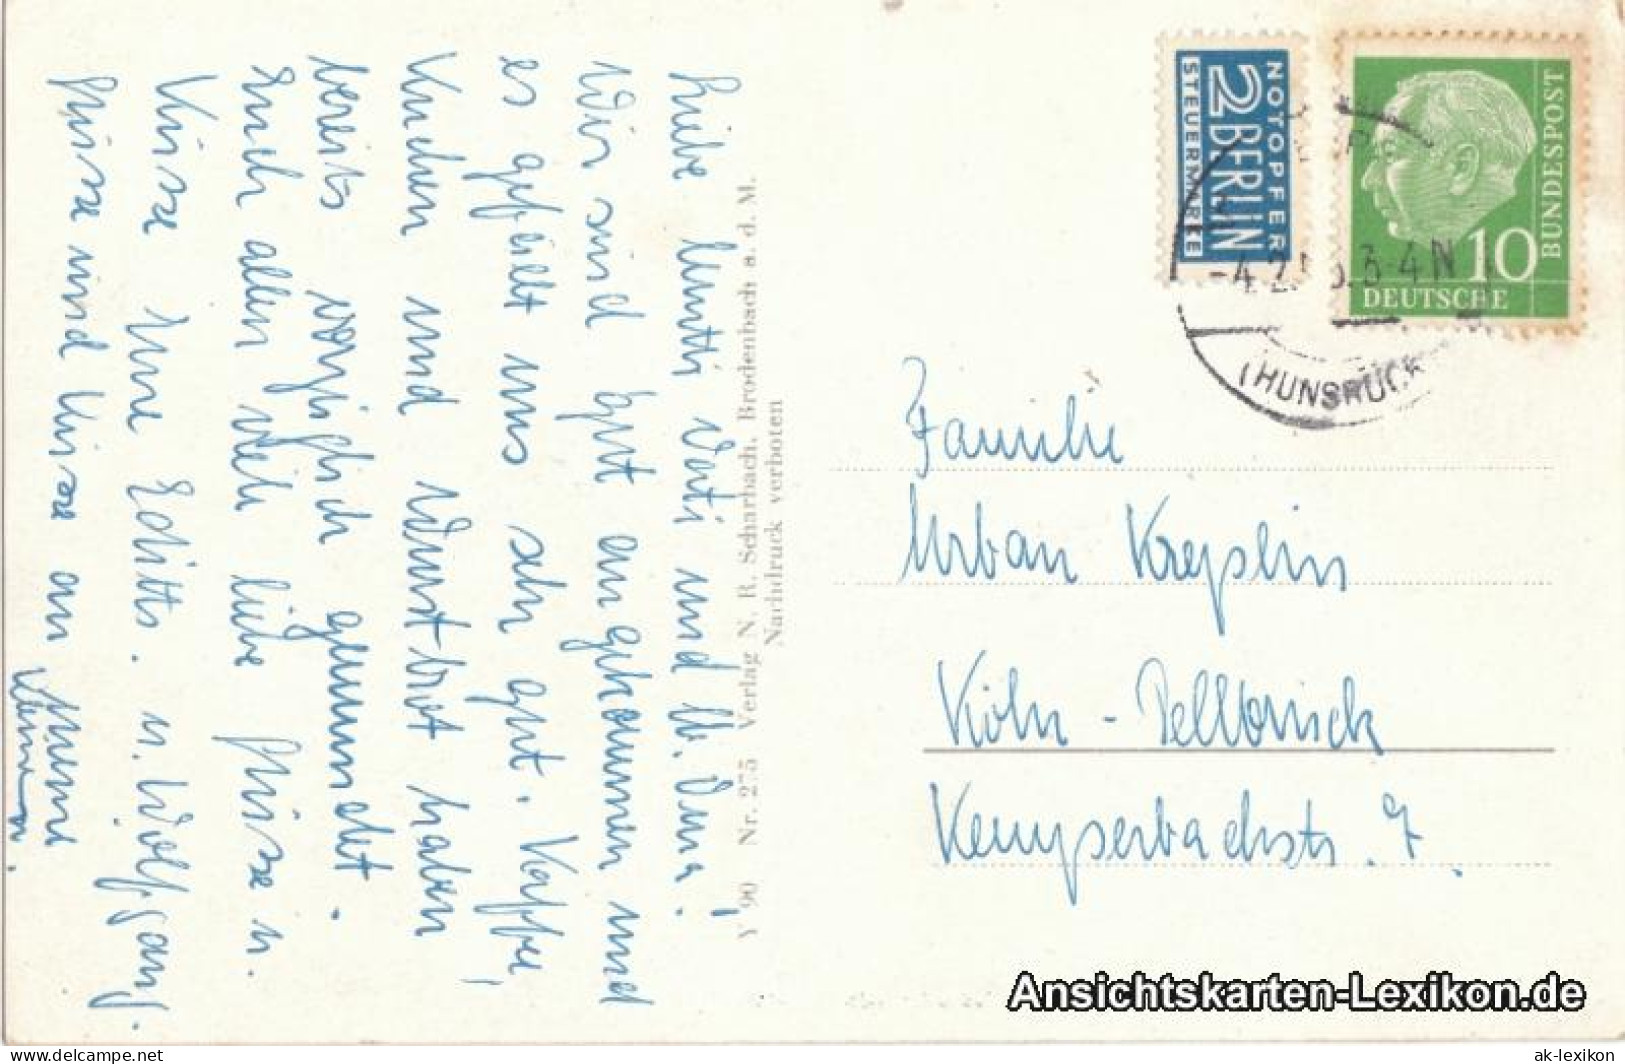 Liebe Mutti, Vati und lb. Oma!
Wir sind gut angekommen und
es gefällt uns sehr gut. Kaffee,
Kuchen und Wurstbrot haben
bereits vorzüglich gemundet.
Euch allen viele liebe Grüsse u.
Küsse Eure Edith. u. Wolfgang.
Grüsse und Küsse an
Y 90 Nr. 275 Verlag N. R. Scharbach, Brodenbach a. d. M.
Nachdruck verboten
NOTOPFER
2 BERLIN
STEUERMARKE
10
DEUTSCHE
BUNDESPOST
-4.2. 3-4N
(HUNSRÜCK
Familie
Urban Kreplin
Köln - Dellbrück
Kemperbachstr. 7.
Ansichtskarten-Lexikon.de
www.delcampe.net
ak-lexikon